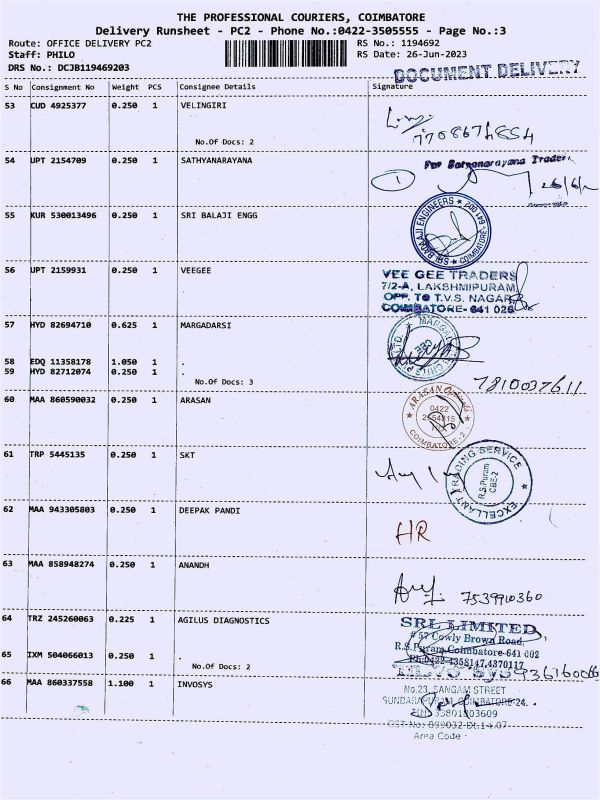 THE PROFESSIONAL COURIERS, COIMBATORE
Delivery Runsheet - PC2 - Phone No.:0422-3505555 - Page No.:3
Route: OFFICE DELIVERY PC2
RS No.: 1194692
Staff: PHILO
RS Date: 26-Jun-2023
DRS No.: DCJB119469203
DOCUMENT DELIVERY
S No Consignment No Weight PCS Consignee Details Signature
53 CUD 4925377 0.250 1 VELINGIRI
7708674884
No.Of Docs: 2
54 UPT 2154709 0.250 1 SATHYANARAYANA
For Satyanarayana Traders
1
55 KUR 530013496 0.250 1 SRI BALAJI ENGG
SRI BALAAJI ENGINEERS
COIMBATORE-641 002
56 UPT 2159931 0.250 1 VEEGEE
VEE GEE TRADERS
7/2-A, LAKSHMIPURAM
OPP. To T.V.S. NAGAR
COIMBATORE- 641 025
57 HYD 82694710 0.625 1 MARGADARSI
58 EDQ 11358178 1.050 1 .
59 HYD 82712074 0.250 1 .
No.Of Docs: 3
7810037611
60 MAA 860590032 0.250 1 ARASAN
ARASAN
0422
COIMBATORE-2
61 TRP 5445135 0.250 1 SKT
EXCELLANT TRADING SERVICE
R.S.Puram
CBE-2
62 MAA 943305803 0.250 1 DEEPAK PANDI
HR
63 MAA 858948274 0.250 1 ANANDH
7539910360
64 TRZ 245260063 0.225 1 AGILUS DIAGNOSTICS
SRL LIMITED
# 57 Cowly Brown Road,
R.S.Puram Coimbatore-641 002
Ph:0422-4358147,4370117
65 IXM 504066013 0.250 1 .
No.Of Docs: 2
66 MAA 860337558 1.100 1 INVOSYS
No.23, SANGAM STREET
SUNDARAPURAM, COIMBATORE-24.
TIN: 33801803609
CST No: 899032 Dt.14.07
Area Code